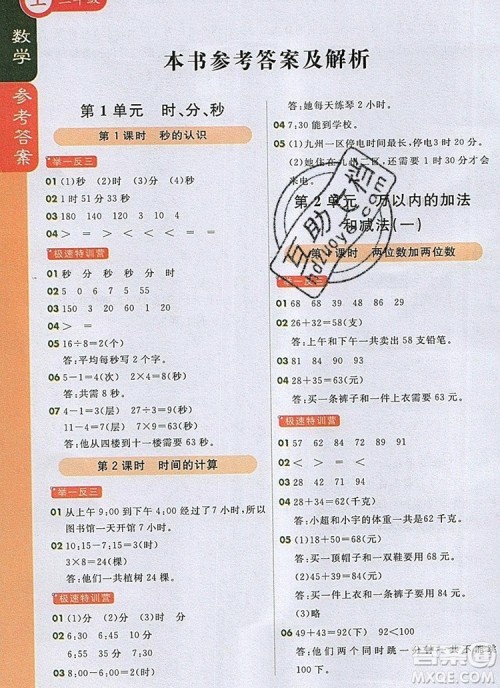 上
三年级
数学
参考答案
本书参考答案及解析
第1单元 时、分、秒
第1课时 秒的认识
举一反三
01 (1)秒 (2)分 (3)时
02 1时51分33秒
03 180 140 120 3 10
04 > < = >
极速特训营
01 秒 秒 秒 秒 分
02 5 7 15
03 150 3 20 60 1 20
04 > = <
05 16÷8=2(秒)
答:平均每秒写2个。
06 5-1=4(次) 2×4=8(秒)
答:共需8秒。
07 4-1=3(层) 27÷3=9(秒)
11-4=7(层) 9×7=63(秒)
答:他从四楼到十一楼共需63秒。
第2课时 时间的计算
举一反三
01 从上午9:00到下午4:00经过7小时,所以
图书馆一天开馆7小时。
02 10:15-7:15=3(时)
3×8=24(棵)
答:他们一共植树24棵。
极速特训营
01 (1)分 (2)分 (3)时
02 6;30 6;55 7;15
03 2 15 9
04 8:00-6:00=2(时)
答:她每天练琴2小时。
04 7;30 能到学校。
05 (1)九州一区停电时间最长,停电3小时。
(2)她住在九州二区,还有33分钟才会
来电。
第2单元 万以内的加法
和减法(一)
第1课时 两位数加两位数
举一反三
01 68 68 29 48 71 86
02 26+32=58(支)
答:上午和下午一共卖出58支铅笔。
03 82 82 90 61 90 94
04 28+34=62(元)
答:买一条裤子和一件上衣需要62元。
极速特训营
01 57 62 84 72 89 91
02 < < = <
03
04 28+34=62(千克)
答:小超和小宇的体重一共是62千克。
05 (1)19+49=68(元)
答:买一顶帽子和一双鞋要用68元。
(2)45+39=84(元)
答:买一条裤子和一件上衣要用84元。
(3)略
06 49+43=92(下) 92<100
答:他们两个同时跳一分钟,共不超过
100下。
互助文档
hdzuoye.com
答案圈
MXQE.COM